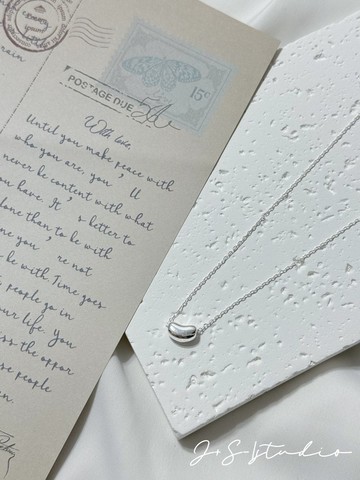 rain.
15¢
POSTAGE DUE
With love,
Until you make peace with
who you are, you ' ll
never be content with what
you have. It ' s better to
lone than to be with
one you ' re not
be with. Time goes
t people go in
our life. You
iss the oppor
se people
in.
J+S Studio